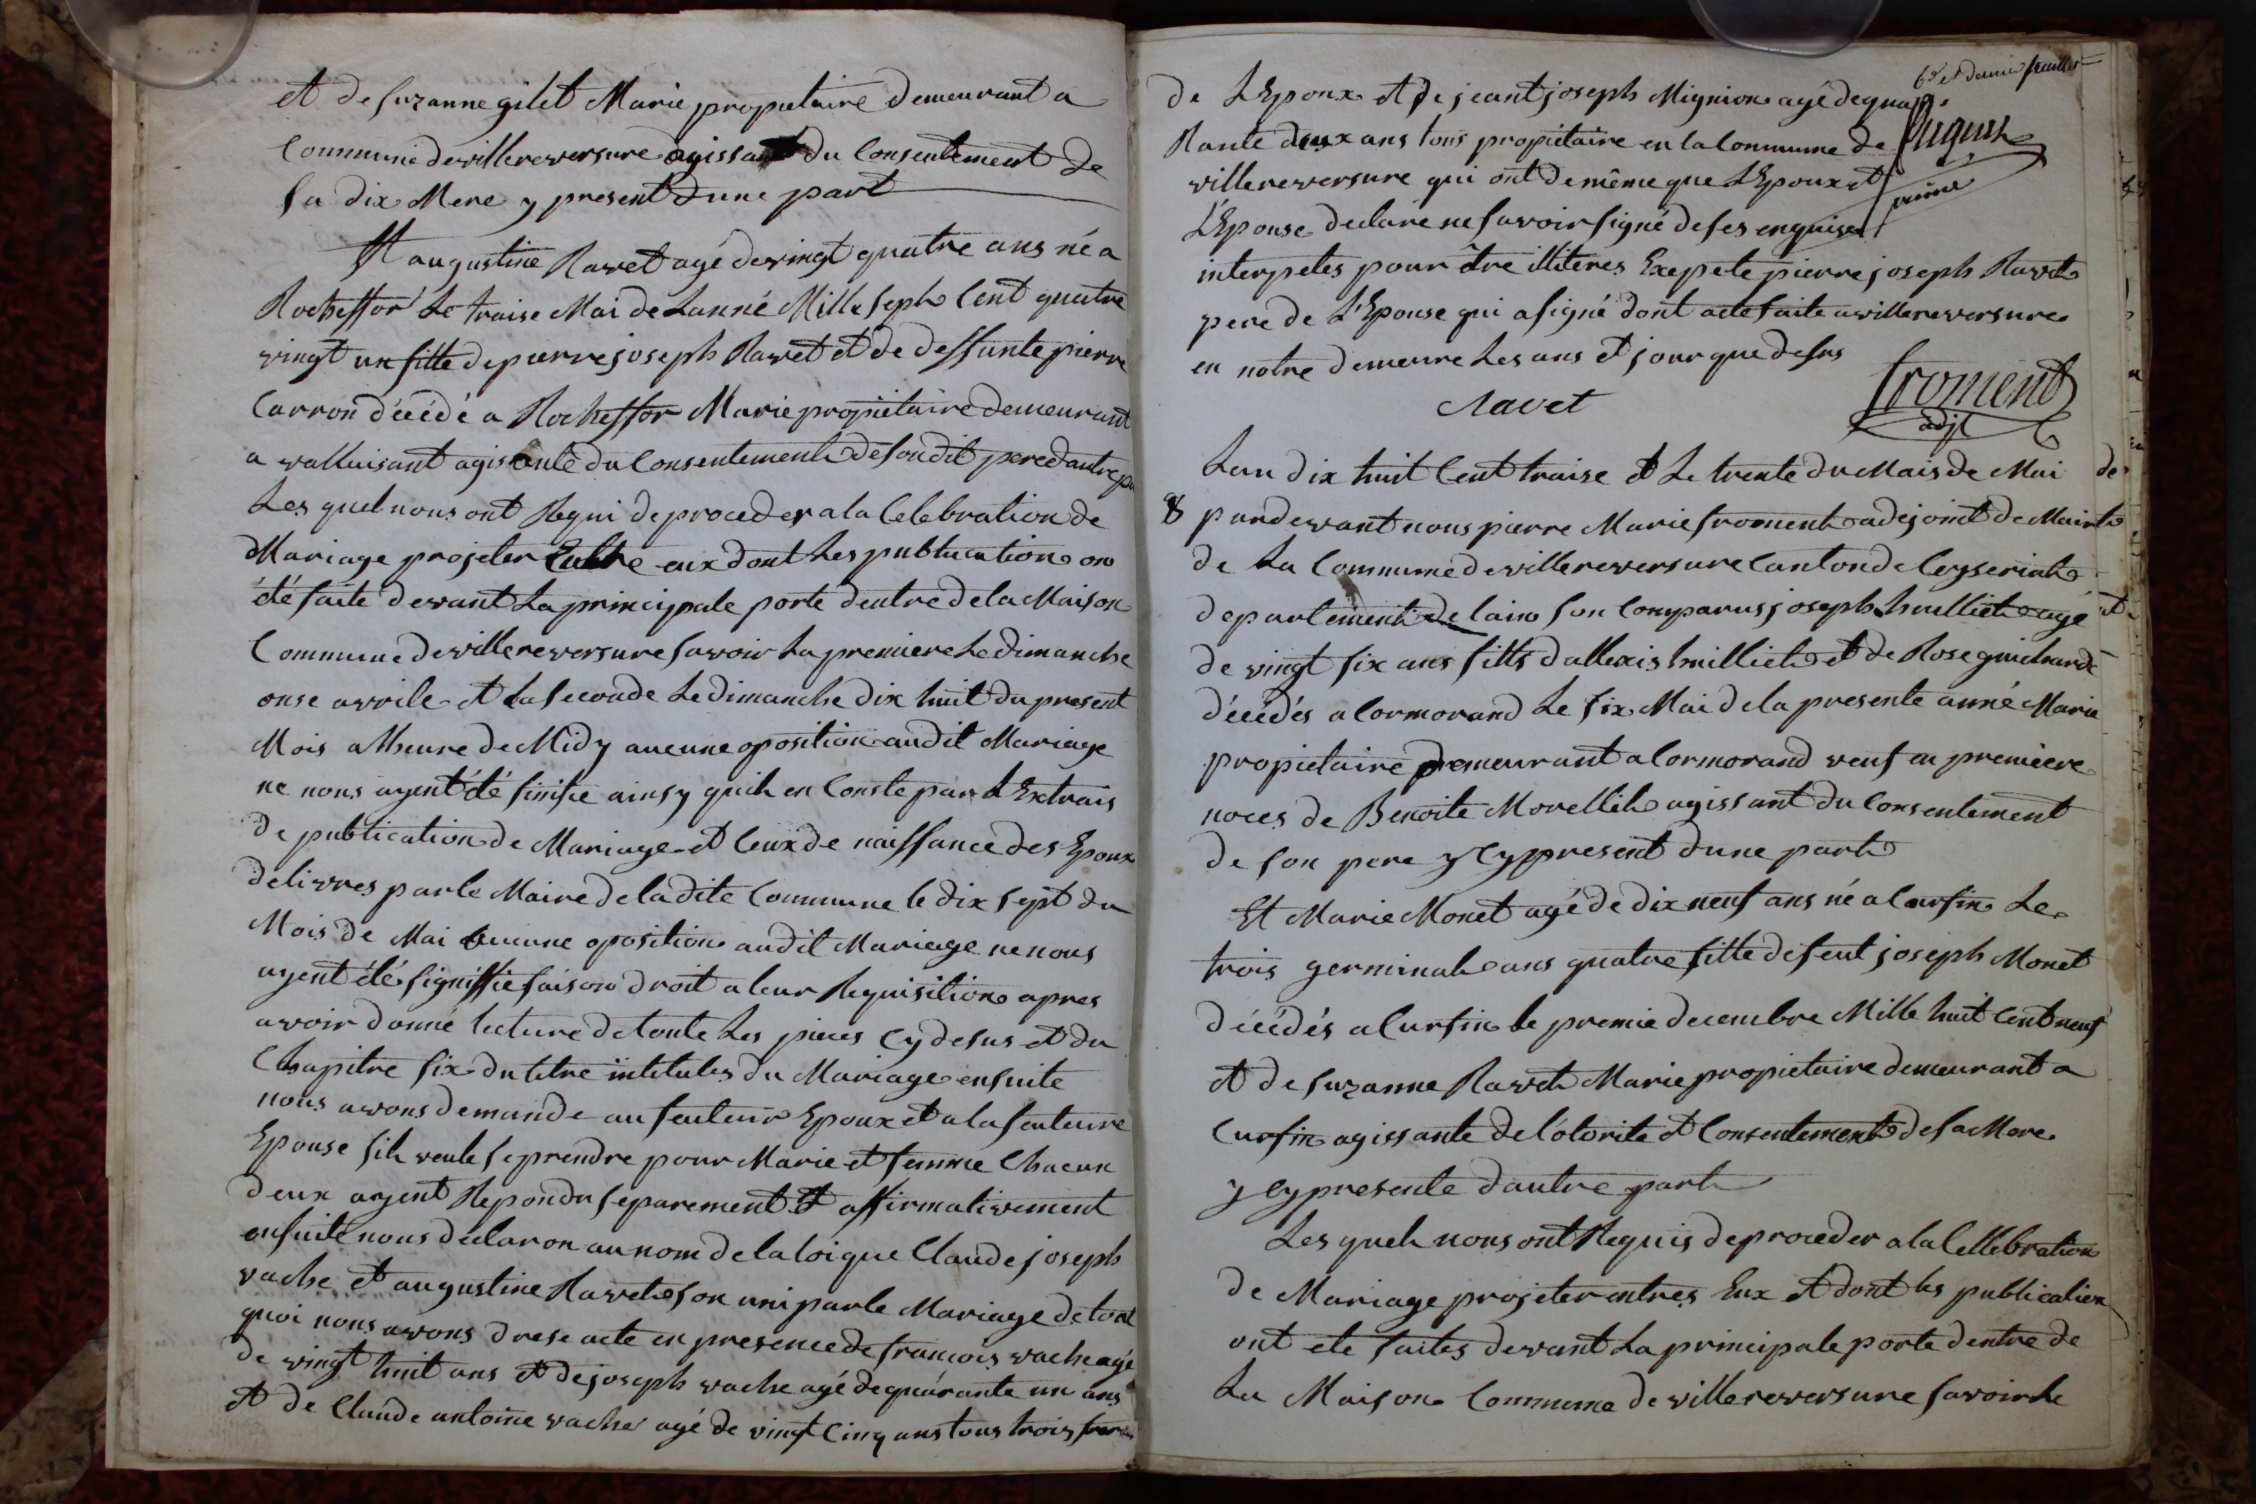 et de suzanne gilet Marie propietaire demeurant a
Commune de villereversure agissant du Consentement de
sa dix Mere y present dune part
Et augustine Ravet agé de vingt quatre ans né a
Rocheffor Le traise Mai de Lanné Mille Seph Cent quatre
vingt un fille de pierre joseph Ravet et de deffunte pierre
Carron décédé a Rocheffor Marie propriétaire demeurant
a valluisant agisante du Consentement de son dit pere dautre pa
Les quel nous ont Requi de proceder a la Celebration de
Mariage projeter Entre eux dont Les publication on
été faite devant La principale porte dentre de la Maison
Commune de villereversure savoir La premiere Le dimanche
onse avrile et La seconde Le dimanche dix huit du present
Mois a Lheure de Midy aucune oposition audit Mariage
ne nous ayent été sinifie ainsy quil en Conste par L'Extrais
de publication de Mariage et Ceux de naissance des Epoux
delivres par le Maire de la dite Commune le dix sept du
Mois de Mai aucune oposition audit Mariage ne nous
ayent été signiffie faison droit a leur Requisition apres
avoir donné lecture de toute Les pieces Cy desus et du
Chapitre six du titre intitules du Mariage ensuite
nous avons demande au feuteur Epoux et a la feuteure
Epouse sil veule se prendre pour Marie et femme Chacun
deux ayent Repondu separement et affirmativement
ensuite nous declaron au nom de la loi que Claude joseph
vache et augustine Ravet son uni par le Mariage de tout
quoi nous avons drese acte en presence de francois vache agé
de vingt huit ans et de joseph vache agé de quarante un ans
et de Claude antoine vache agé de vingt Cinq ans tous trois frere
6e et dernie feuillet
de L'Epoux et de jeant joseph Mignion agé de qua
Rante deux ans tous propietaire en la Commune de
villereversure qui ont de même que L'Epoux et
L'Epouse declare ne savoir signé de ses enquise
interpeles pour être illiteres Exepete pierre joseph Ravet
pere de L'Epouse qui a signé dont acte faite a villereversure
en notre demeure Les ans et jour que desus
Ravet
froment
adjt
Lan dix huit Cent traise et Le trente du Mais de Mai
8 pardevant nous pierre Marie froment adejoint de Maire
de La Commune de villereversure Canton de Ceyseriat
departement de lain son Comparus joseph huilliet agé
de vingt six ans fills dallexis huilliet et de Rose guichard
décédés a Cormorand Le six Mai de la presente anné Marie
propietaire demeurant a Cormorand veuf en premiere
noces de Benoite Morellet agissant du Consentement
de son pere y Cy present dune part
Et Marie Monet agé de dix neuf ans né a Cursin Le
trois germinal ans quatre fille de feut joseph Monet
décédés a Cursin le premie decembre Mille huit Cent neuf
et de suzanne Ravet Marie propietaire demeurant a
Cursin agissante de lotorite et Consentement de sa Mere
y Cy presente dautre part
Les quel nous ont Requis de proceder a la Cellebration
de Mariage projeter entres Eux et dont les publication
ont ete faites devant La principale porte dentre de
La Maison Commune de villereversure savoir Le